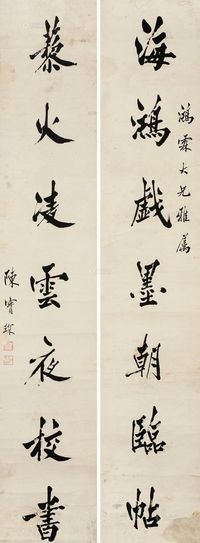 鴻霖大兄雅屬
海鴻戲墨朝臨帖
藜火凌雲夜校書
陳寶琛